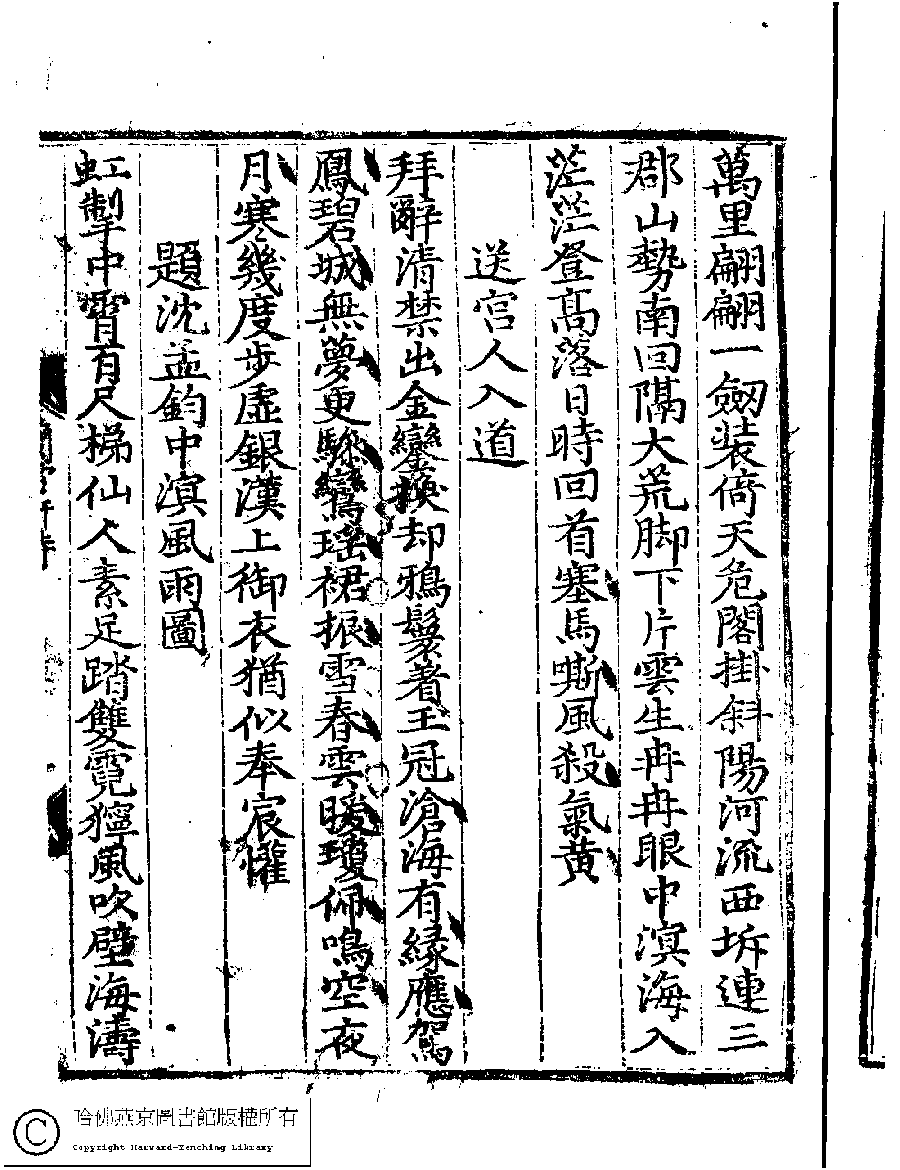 萬里翩翩一劒裝倚天危閣掛斜陽河流西坼連三
郡山勢南回隔大荒脚下片雲生冉冉眼中溟海入
茫茫登高落日時回首塞馬嘶風殺氣黃
送宮人入道
拜辭清禁出金鑾換却鴉鬟著玉冠滄海有緣應駕
鳳碧城無夢更驂鸞瑶裙振雪春雲暖瓊佩鳴空夜
月寒幾度步虛銀漢上御衣猶似奉宸懽
題沈孟鈞中溟風雨圖
虹掣中霄百尺梯仙人素足踏雙霓獰風吹壁海濤
哈佛燕京圖書館版權所有
Copyright Harvard-Yenching Library